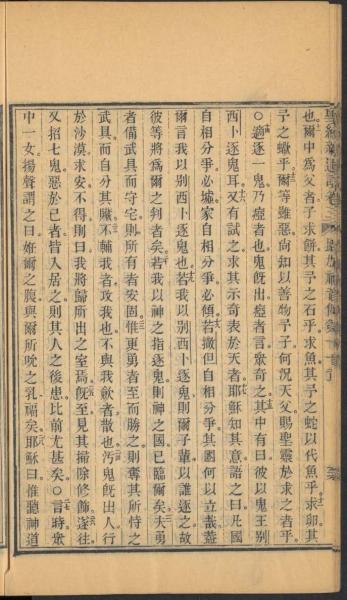 也爾中為父者子求餅其予之石乎求魚其予之蛇以代魚乎求卵其
予之蠍乎爾等雖惡尚知以善物予子何況天父賜聖靈於求之者乎
〇適逐一鬼乃瘖者也鬼既出瘖者言眾奇之其中有曰彼以鬼王別
西卜逐鬼耳又有試之求其示奇表於天者耶穌知其意語之曰凡國
自相分爭必墟家自相分爭必傾若撒但自相分爭其國何以立哉蓋
爾言我以別西卜逐鬼也若我以別西卜逐鬼則爾子輩以誰逐之故
彼等將為爾之判者矣若我以神之指逐鬼則神之國已臨爾矣夫勇
者備武具而守宅則所有者安固惟更勇者至而勝之則奪其所恃之
武具而自分其贓不輔我者攻我也不與我歛者散也污鬼既出人行
於沙漠求安不得則曰我將歸所出之室焉既至見其掃除修飾遂往
又招七鬼惡於己者皆入居之則其人之後患比前尤甚矣〇言時眾
中一女揚聲謂之曰姙爾之腹與爾所吮之乳福矣耶穌曰惟聽神道